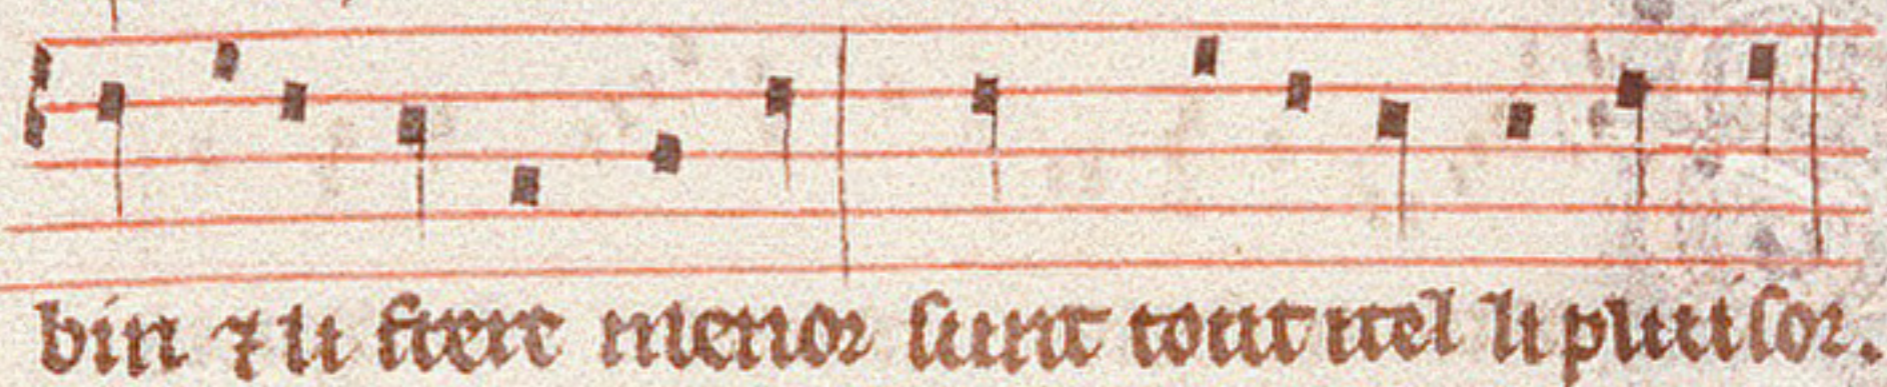 bin ⁊ li frere menor sunt tout itel li pluisor.